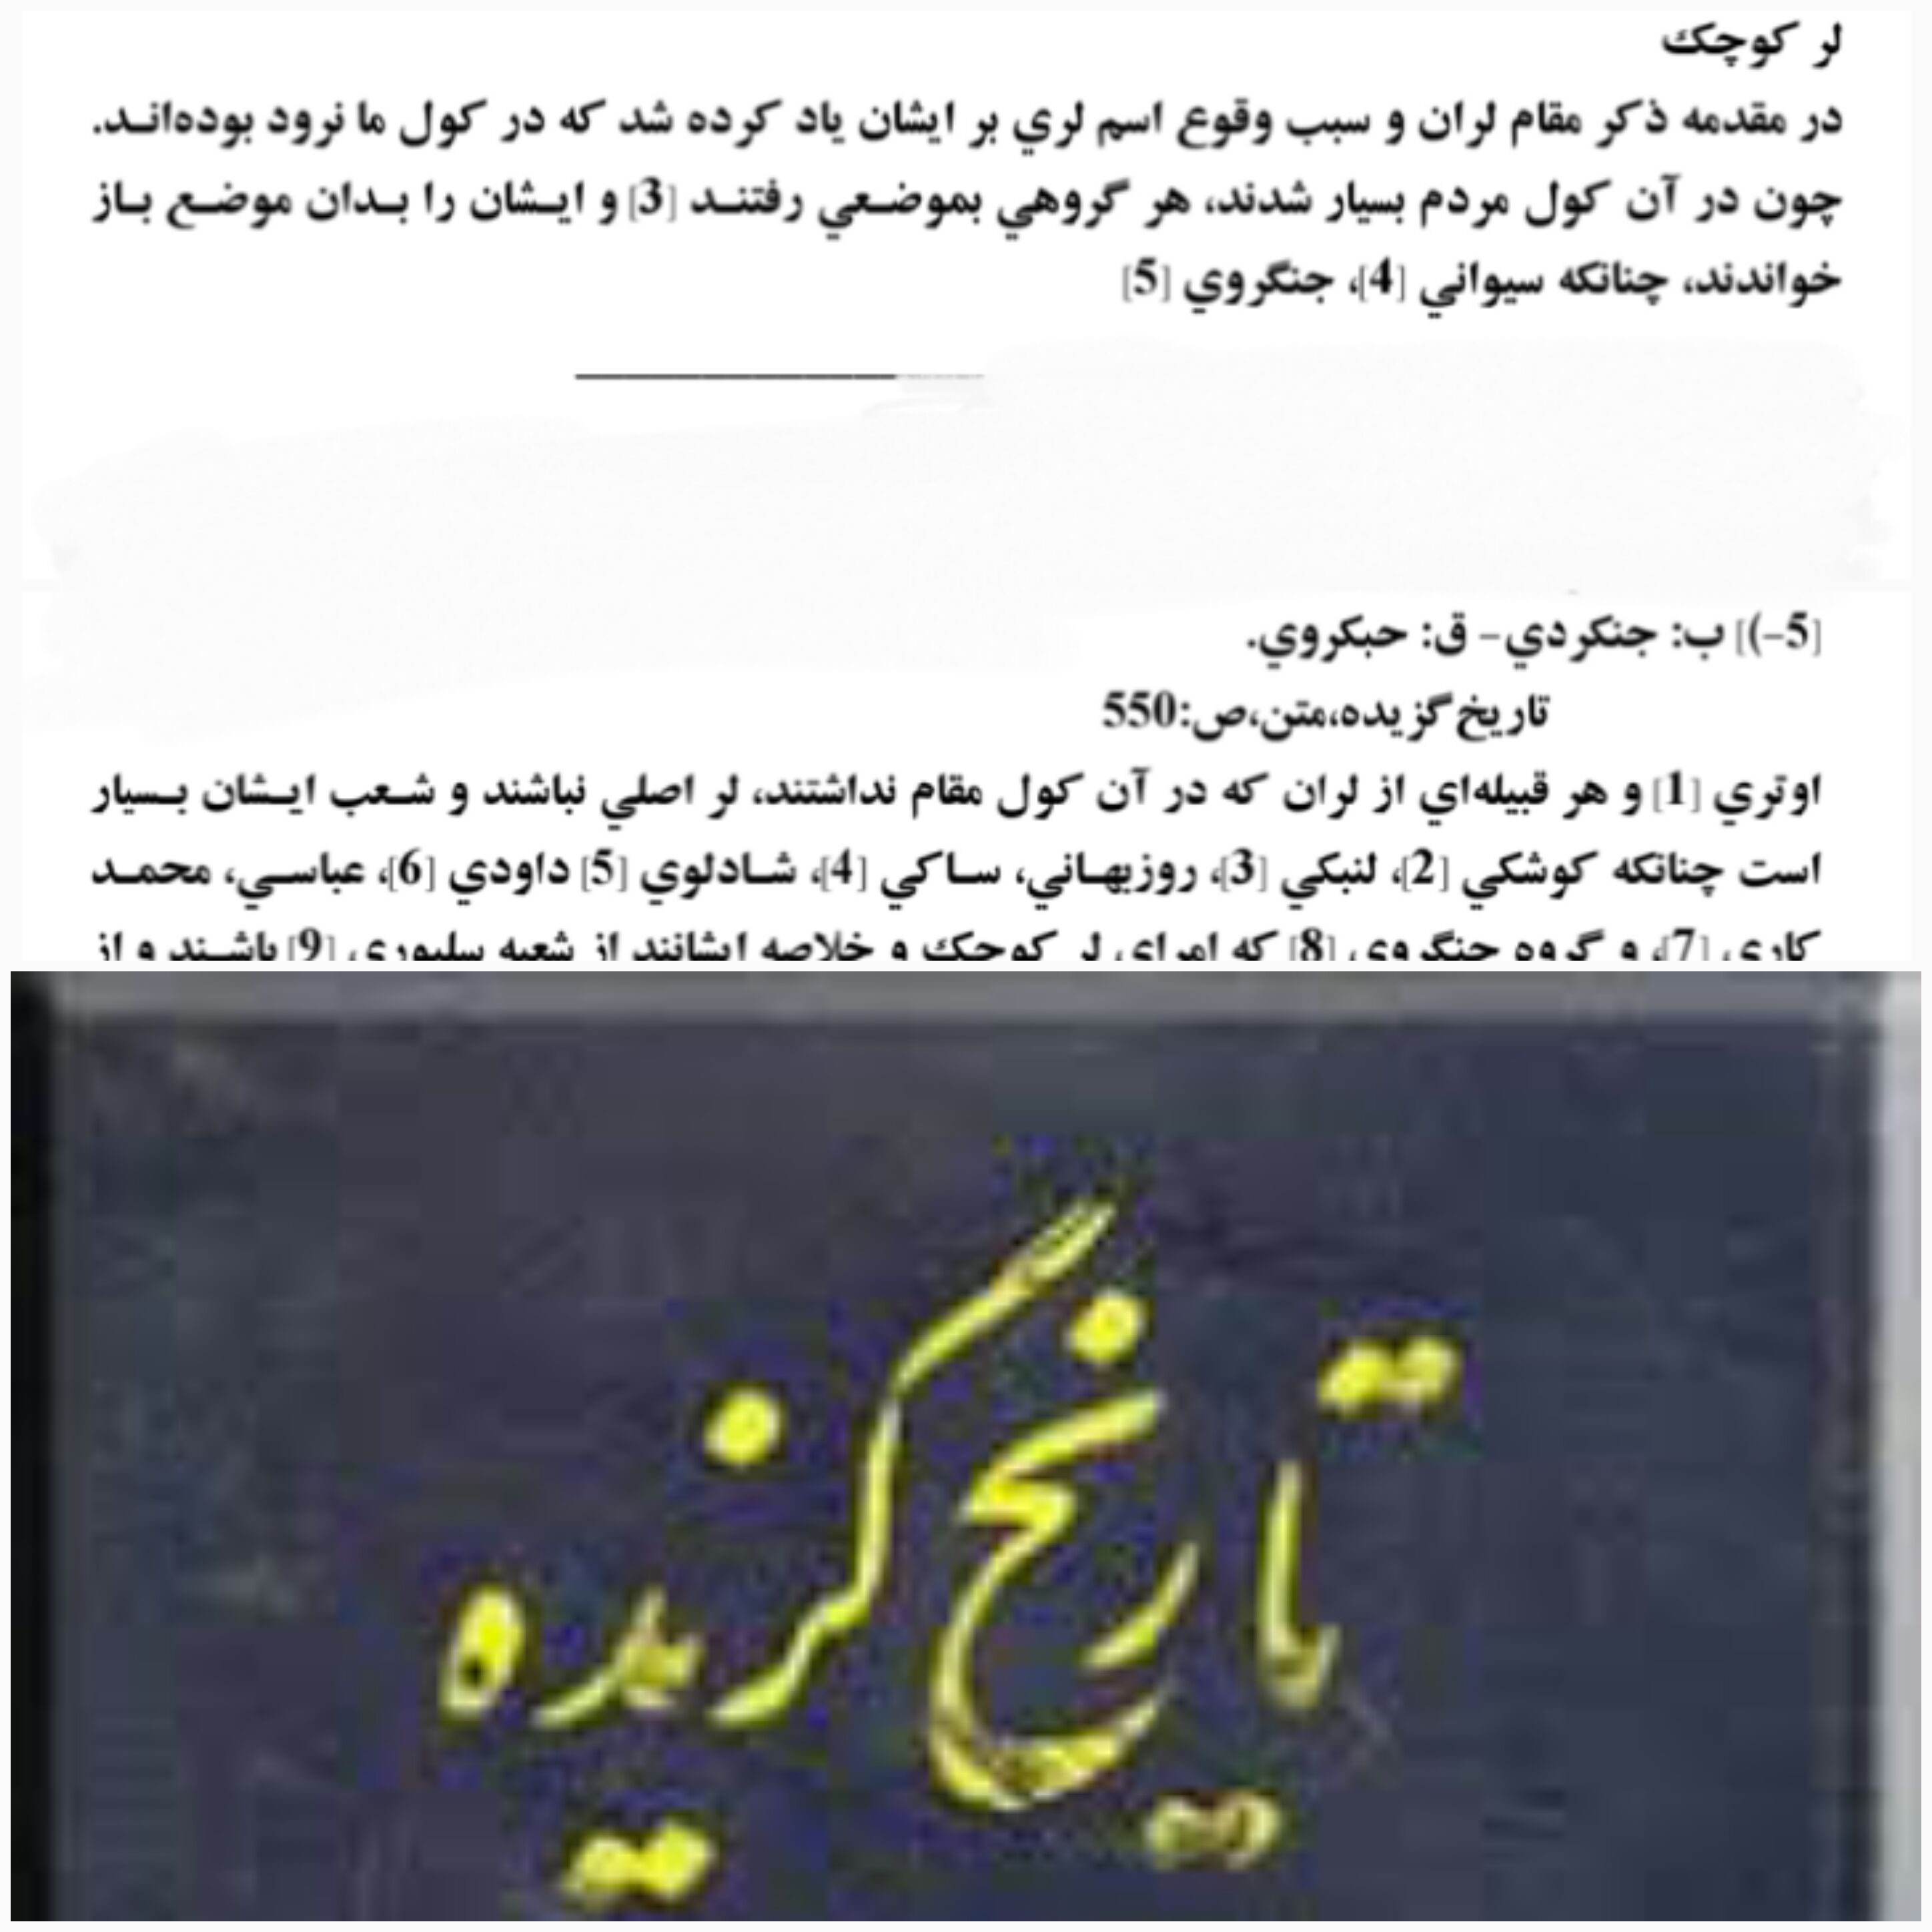 لر کوچک
در مقدمه ذکر مقام لران و سبب وقوع اسم لري بر ایشان یاد کرده شد که در کول ما نرود بوده‌انـد.
چون در آن کول مردم بسیار شدند، هر گروهي بموضـعي رفتنـد [3] و ایـشان را بـدان موضـع بـاز
خواندند، چنانکه سیواني [4]، جنگروي [5]
[5-)] ب: جنکردي- ق: حبکروي.
تاریخ گزیده،متن،ص:550
اوتري [1] و هر قبیله‌اي از لران که در آن کول مقام نداشتند، لر اصلي نباشند و شـعب ایـشان بـسیار
است چنانکه کوشکي [2]، لنبکي [3]، روزبهـاني، سـاکي [4]، شـادلوي [5] داودي [6]، عباسـي، محمـد
کاري [7]، و گروه جنگروي [8] که امراي لر کوچک و خلاصه ایشانند از شعبه سلیوري [9] باشـند و از
تاریخ گزیده